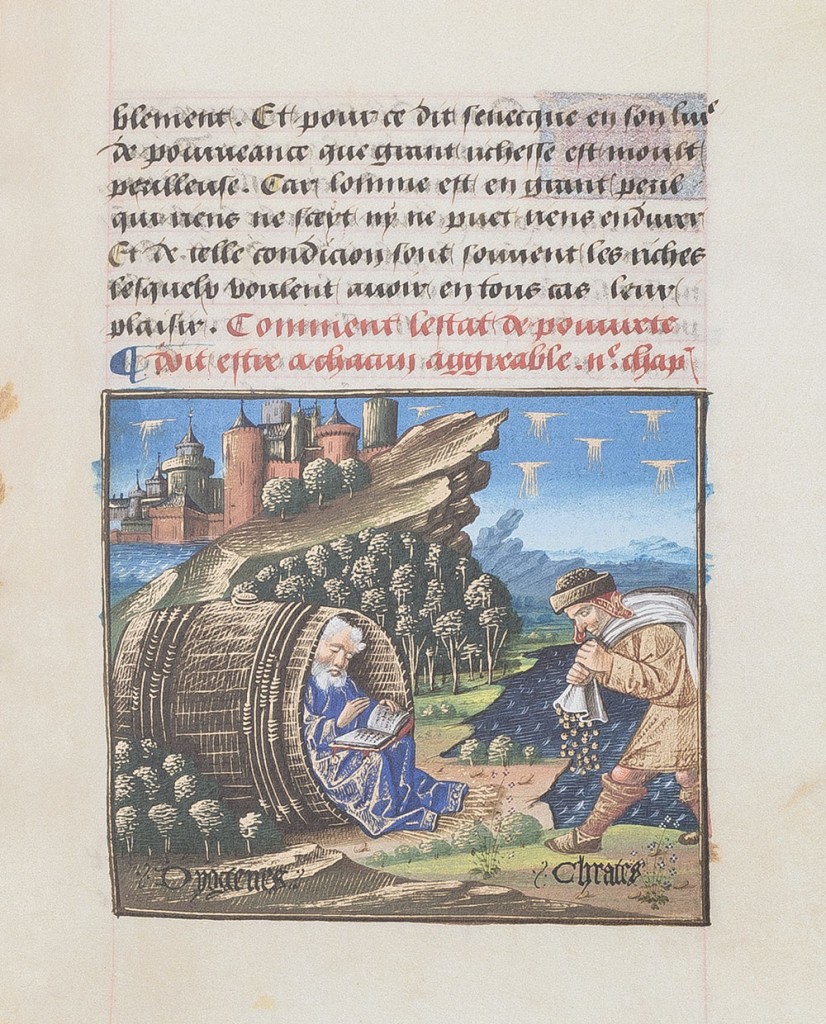 blement. Et pour ce dit senecque en son liure
de pourueance que grant richesse est moult
perilleuse. Car lomme est en grant peril
qui riens ne scet ny ne puet riens endurer
Et de telle condicion sont souuent les riches
lesquelz voulent auoir en tous cas leur
plaisir. Comment lestat de pourete
doit estre a chacun aggreable. iie. chap
Dyogenes.
Chrates